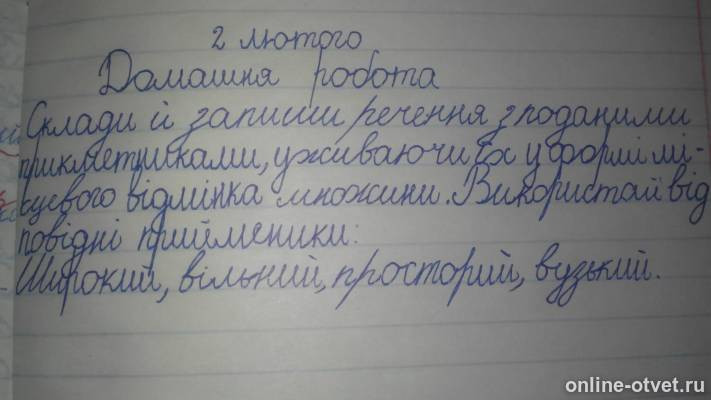 2 лютого
Домашня робота
Склади й запиши речення з поданими
прикметниками, уживаючи їх у формі мі-
сцевого відмінка множини. Використай від
повідні прийменики:
Широкий, вільний, просторий, вузький.
online-otvet.ru